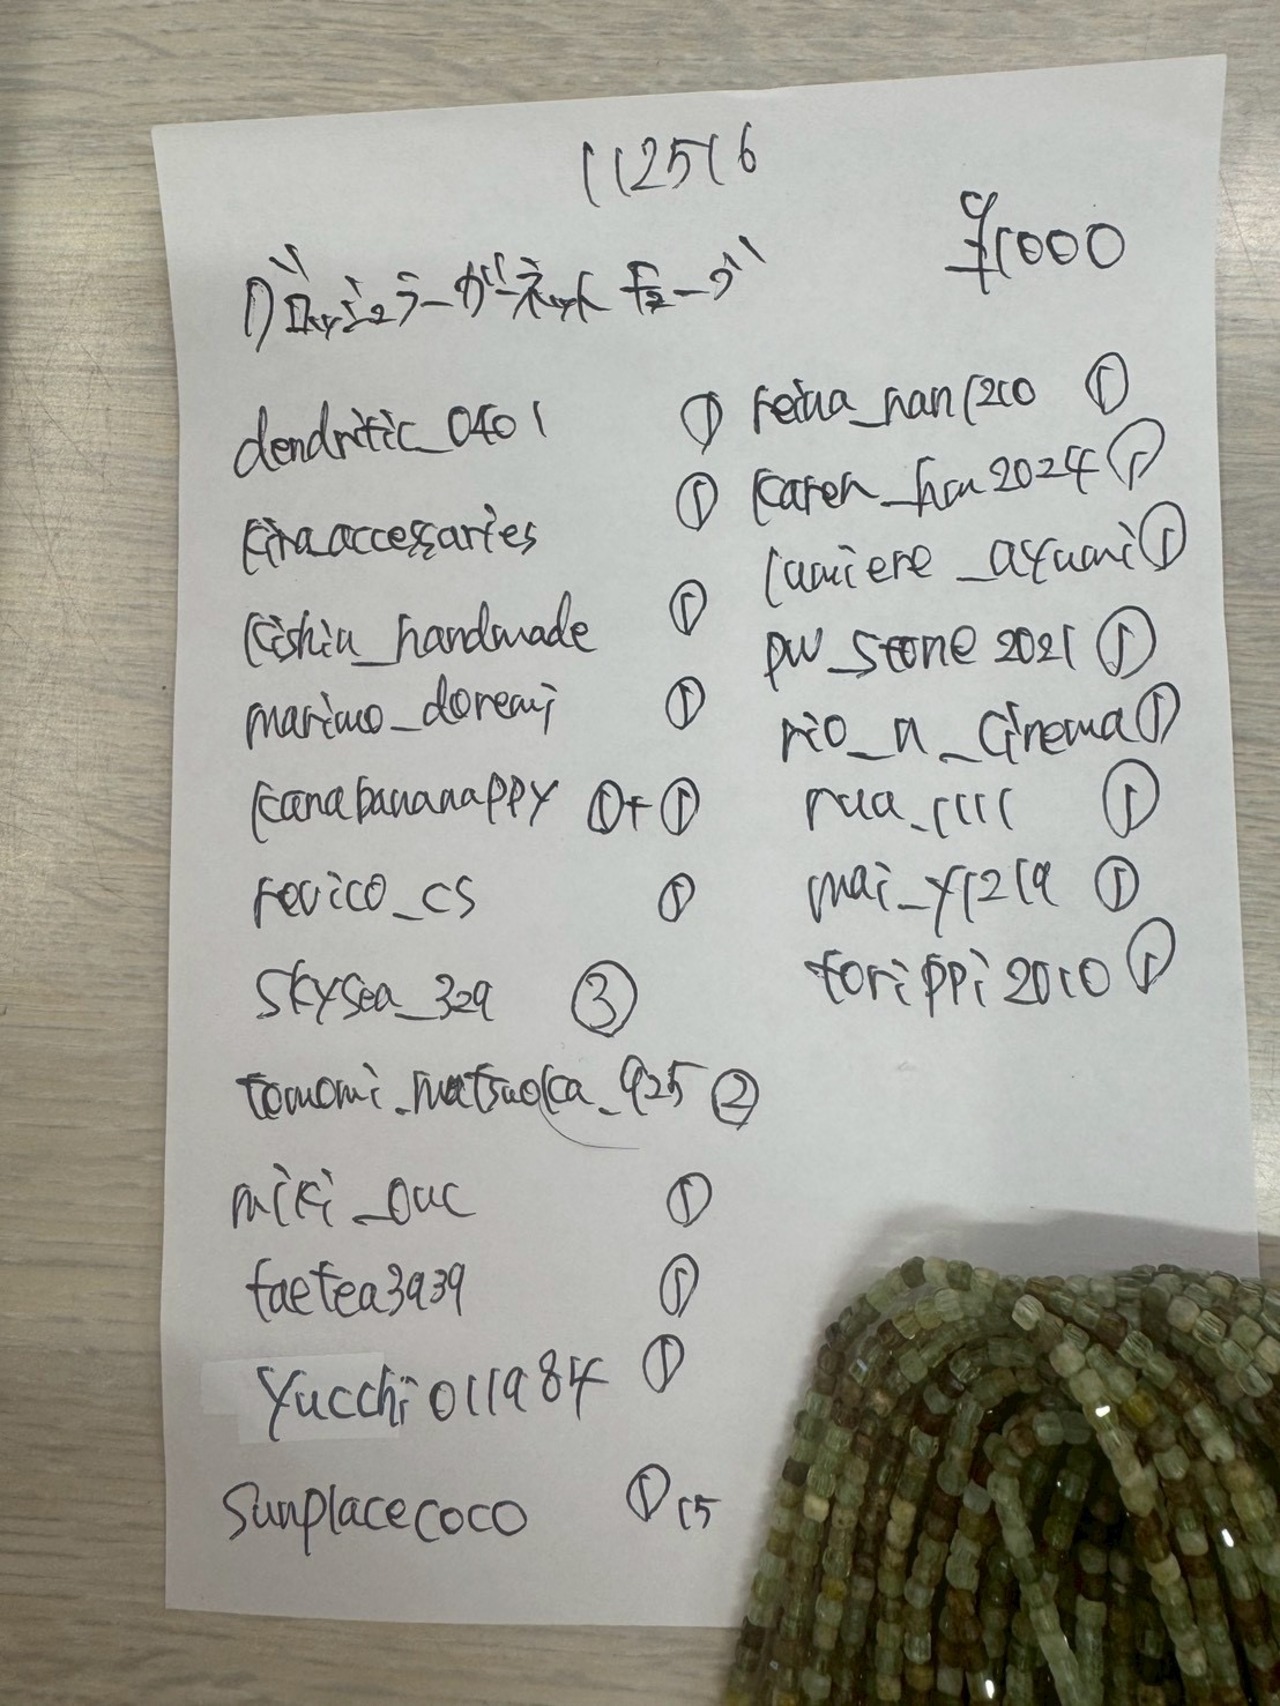 112516
グロッシュラーガーネットキューブ
¥1000
dendritic_0401 ①
kiraaccessaries ①
kishiu_handmade ①
marimo_doremi ①
kanabananappy ①+①
revico_cs ①
skysea_329 ③
tomomi_matsuoka_925 ②
miki_ouc ①
taetea3939 ①
yucchi011984 ①
sunplacecoco ① 15
reina_nan1210 ①
karen_han2024 ①
lumiere_ayumi ①
pw_stone2021 ①
rio_n_cinema ①
rua_1111 ①
mai_y1219 ①
torippi2010 ①